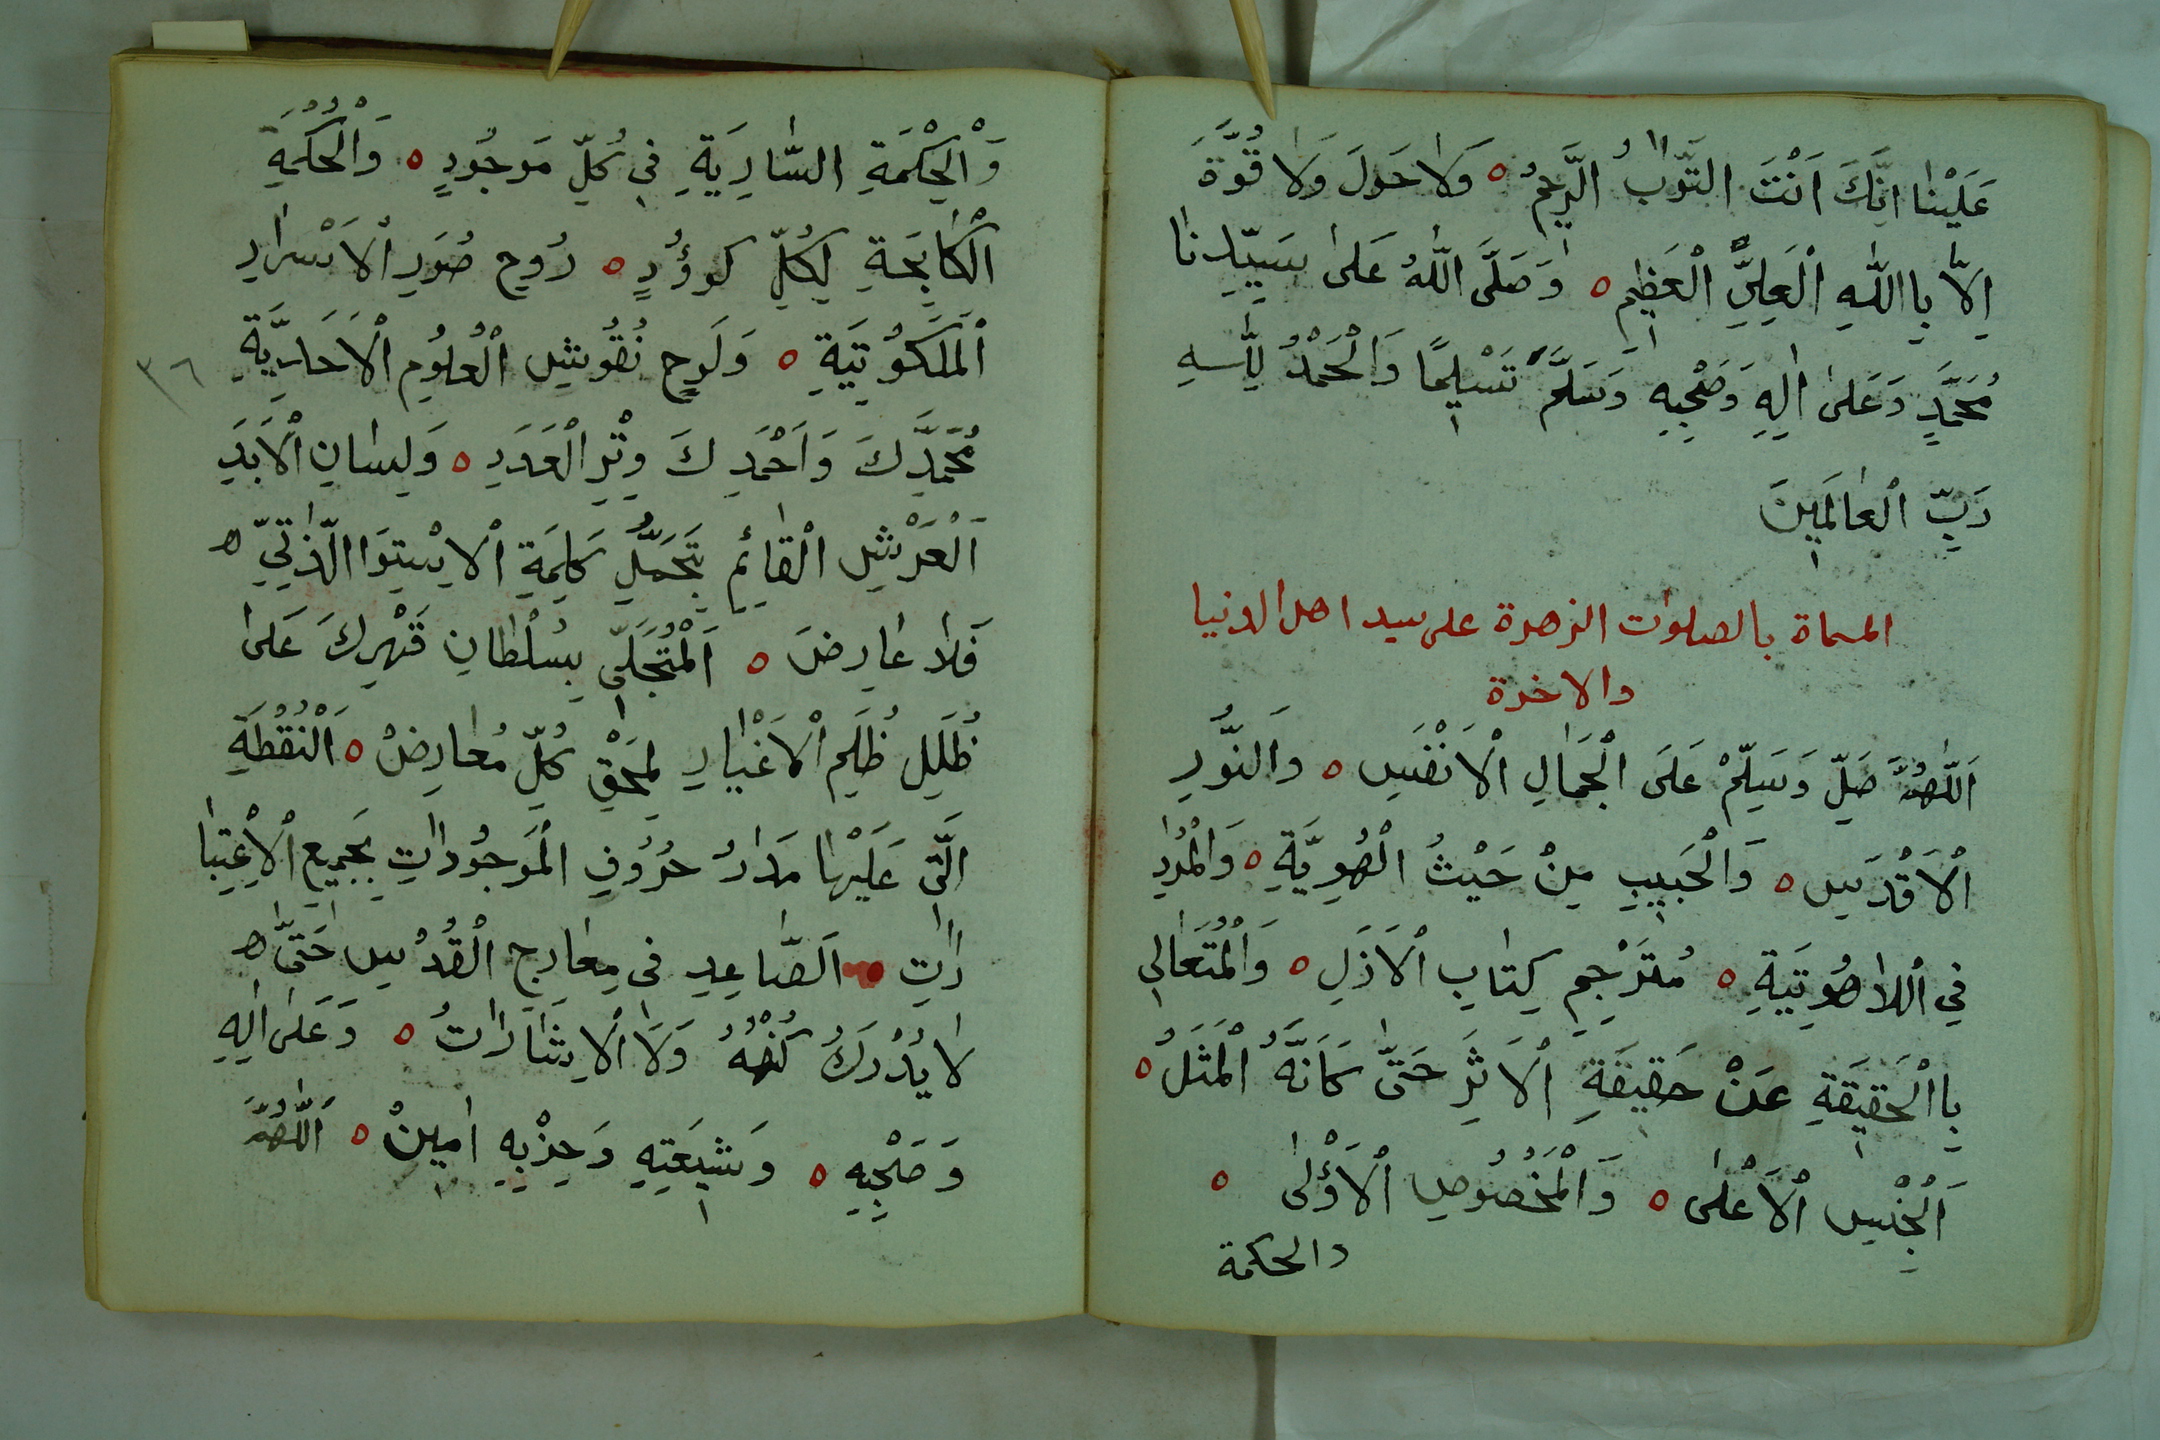 عَلَيْنا انَّكَ اَنْتَ التَّوّابُ الرَّحِيمُ ه وَلاحَولَ وَلا قُوَّةَ
اِلّا بِااللّٰهِ الْعَلِيِّ الْعَظِيمِ ه وَصَلَّى اللّٰهُ عَلىٰ سَيِّدِنا
مُحَمَّدٍ وَعَلىٰ اٰلِهِ وَصَحْبِهِ وَسَلَّمَ تَسْلِيمًا وَالْحَمْدُ لِلّٰهِ
رَبِّ الْعالَمِينَ
المسماة بالصلوات الزهرة على سيد اهل الدنيا
والاخرة
اَللّٰهُمَّ صَلِّ وَسَلِّمْ عَلَى الْجَمالِ الْاَنْفَسِ ه وَالنُّورِ
الْاَقْدَسِ ه وَالْحَبِيبِ مِنْ حَيْثُ الْهُوِيَّةِ ه وَالْمُرادِ
فِي اْللاهُوتِيَةِ ه مُتَرْجِمِ كِتابِ الْاَزَلِ ه وَالْمُتَعالِى
بِاالْحَقِيقَةِ عَنْ حَقِيقَةِ الْاَثَرِ حَتّىٰ كَاَنَّهُ الْمَثَلُ ه
اَلْجِنْسِ الْاَعْلىٰ ه وَالْمَخْصُوصِ الْاَوْلىٰ ه
والحكمة
وَالْحِكْمَةِ السّارِيَةِ فِى كُلِّ مَوجُودٍ ه وَالْحُكْمَةِ
الْكابِحَةِ لِكُلِّ كَوؤُدٍ ه رُوحِ صُوَرِ الْاَسْرارِ
اَلْمَلَكُوتِيَةِ ه وَلَوحِ نُقُوشِ الْعُلُومِ الْاَحَدِيَّةِ
٣٦
مُحَمَّدِكَ وَاَحْمَدِكَ وِتْرِ الْعَدَدِ ه وَلِسانِ الْاَبَدِ
اَلْعَرْشِ الْقائِمِ بِتَحَمُّلِ كَلِمَةِ الْاِسْتِوَا الذّاتِيِّ ه
فَلا عارِضَ ه اَلْمُتَجَلّى بِسُلْطانِ قَهْرِكَ عَلىٰ
ظُلَلِ ظُلَمِ الْاَغْيارِ لِمَحْقِ كُلِّ مُعارِضْ ه اَلْنُقْطَةِ
الَّتِى عَلَيْها مَدارُ حُرُوفِ الْمَوجُوداتِ بِجَمِيعِ الْاِعْتِبا
راتِ ه اَلصّاعِدِ فى مِعارِجِ الْقُدْسِ حَتّىٰ ه
لا يُدْرَكُ كُنْهُهُ وَلَا الْاِشاراتُ ه وَعَلىٰ اٰلِهِ
وَصَحْبِهِ ه وَشِيعَتِهِ وَحِزْبِهِ اٰمِينْ ه اَللّٰهُمَّ